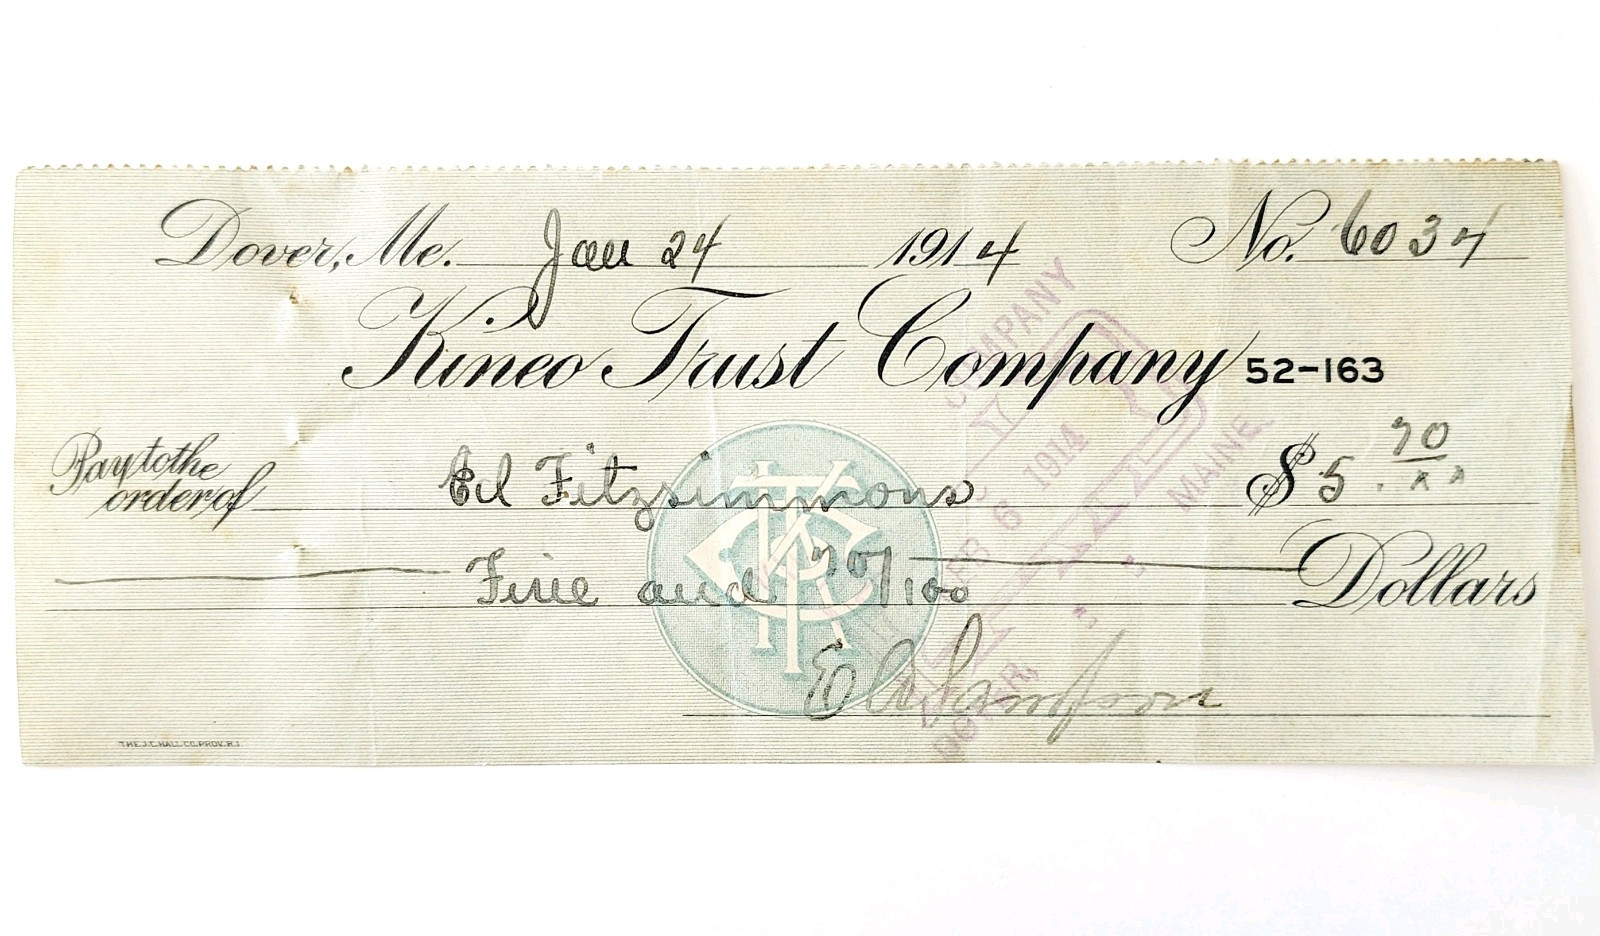 Dover, Me. Jan 24 1914 No. 6034
Kineo Trust Company 52-163
Pay to the order of Ed Fitzsimmons $5. 70/xx
Five and 70/100 Dollars
Simpson
COMPANY
6 1914
MAINE
DOVER,
KTC
THE J.C. HALL CO. PROV. R.I.